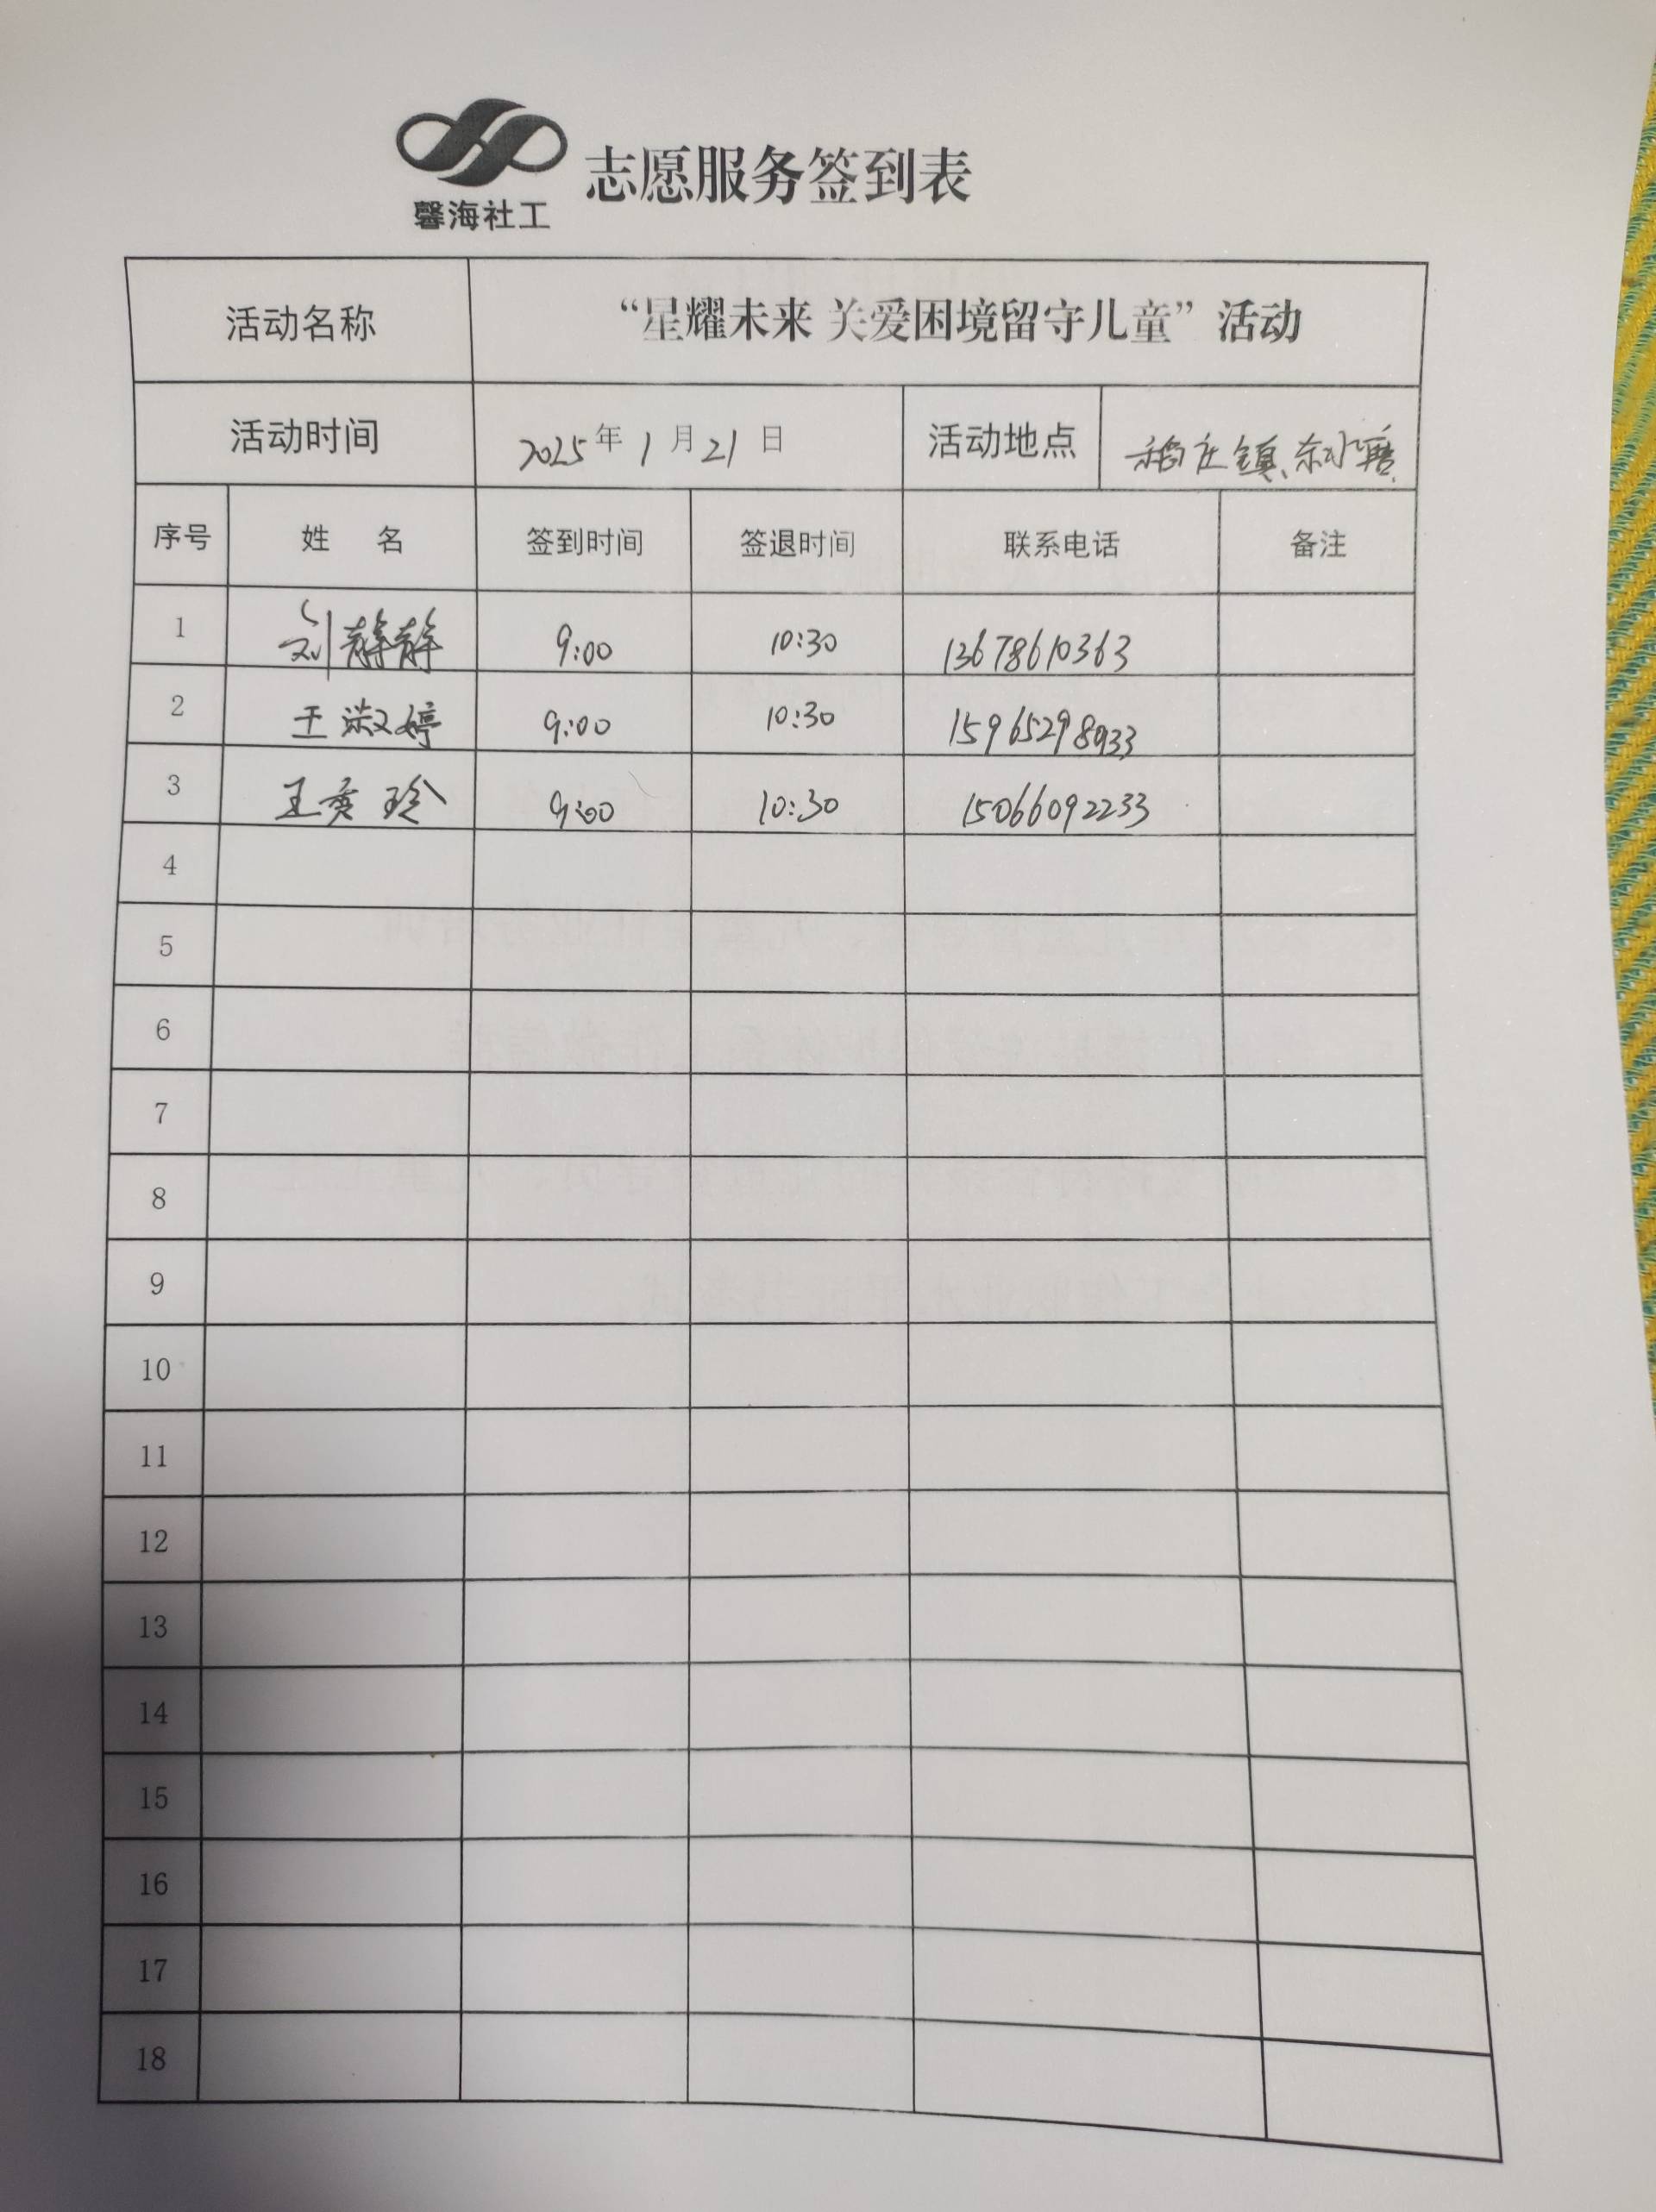 馨海社工
志愿服务签到表
活动名称 “星耀未来 关爱困境留守儿童”活动
活动时间 2025年1月21日 活动地点 稻庄镇
序号 姓 名 签到时间 签退时间 联系电话 备注
1 刘静静 9:00 10:30 13678610363
2 王淑婷 9:00 10:30 15965298933
3 王 玲 9:00 10:30 15066092233
4
5
6
7
8
9
10
11
12
13
14
15
16
17
18